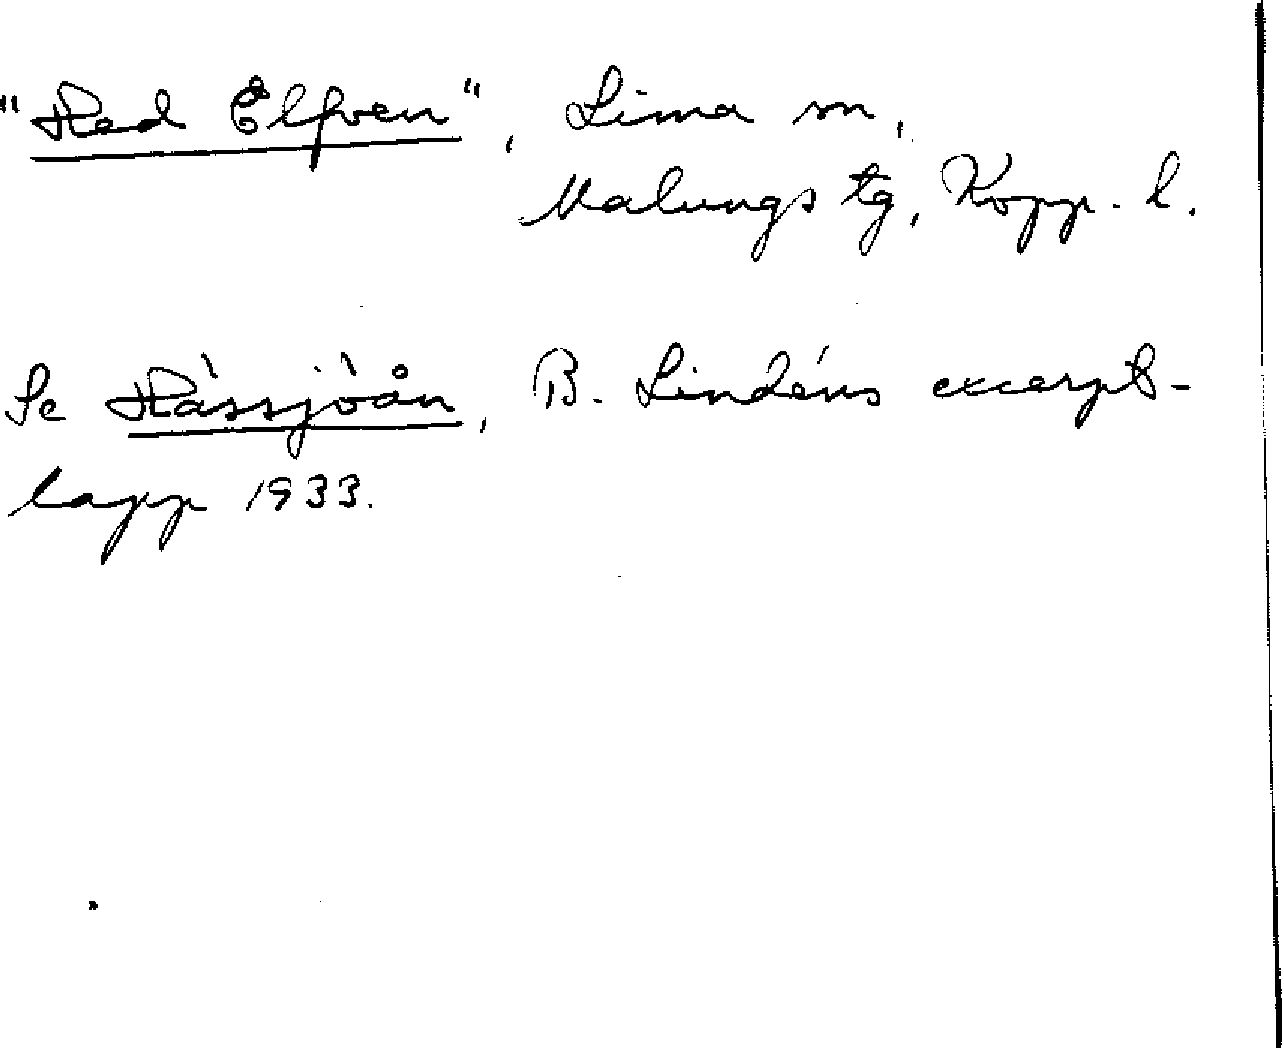 "Hed Elfven", Lima sn,
Malungs tg, Kopp. l.
Se Hàssjòån, B. Lindéns excerpt-
lapp 1933.